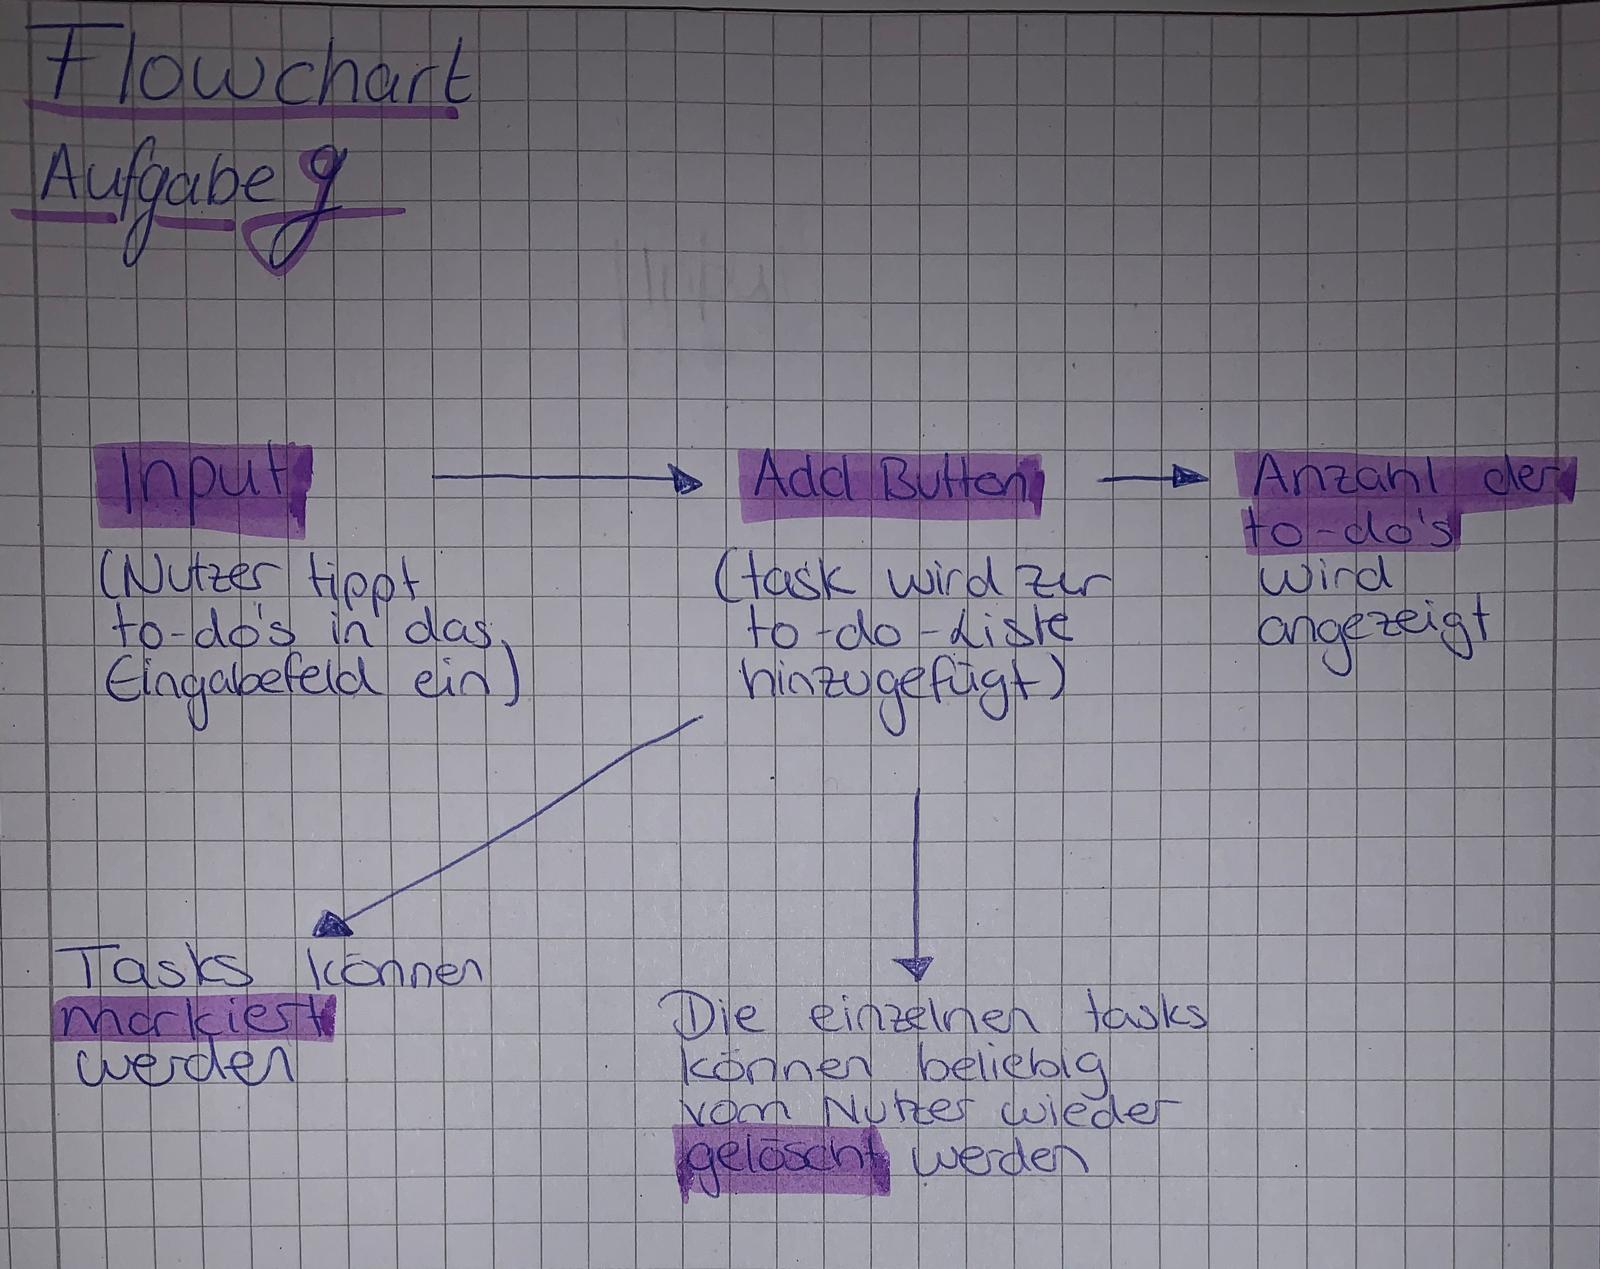 Flowchart
Aufgabe 9
Input
(Nutzer tippt
to-do's in das
Eingabefeld ein)
Add Button
(task wird zur
to-do-Liste
hinzugefügt)
Anzahl der
to-do's
wird
angezeigt
Tasks können
markiert
werden
Die einzelnen tasks
können beliebig
vom Nutzer wieder
gelöscht werden